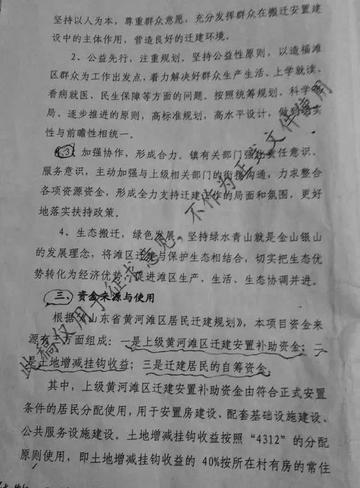 坚持以人为本，尊重群众意愿，充分发挥群众在搬迁安置建
设中的主体作用，营造良好的迁建环境。
2、公益先行，注重规划，坚持公益性原则，以造福滩
区群众为工作出发点，着力解决好群众生产生活、上学就读、
看病就医、民生保障等方面的问题。按照统筹规划，科学
局、逐步推进的原则，高标准规划，高水平设计，做
性与前瞻性相统一。
3、加强协作，形成合力。镇有关部门强化责任意识、
服务意识，主动加强与上级相关部门的衔接沟通，力求整合
各项资源资金，形成全力支持迁建工作的局面和氛围，更好
地落实扶持政策。
4、生态搬迁，绿色发展。坚持绿水青山就是金山银山
的发展理念，将滩区迁建与保护生态相结合，切实把生态优
势转化为经济优势，促进滩区生产、生活、生态协调并进。
三、资金来源与使用
根据《山东省黄河滩区居民迁建规划》，本项目资金来
源有三方面组成：一是上级黄河滩区迁建安置补助资金；二
是土地增减挂钩收益；三是迁建居民的自筹资金。
其中，上级黄河滩区迁建安置补助资金由符合正式安置
条件的居民分配使用，用于安置房建设、配套基础设施建设、
公共服务设施建设，土地增减挂钩收益按照“4312”的分配
原则使用，即土地增减挂钩收益的 40%按所在村有房的常住
此稿仅用于征求意见，不作为正式文件使用